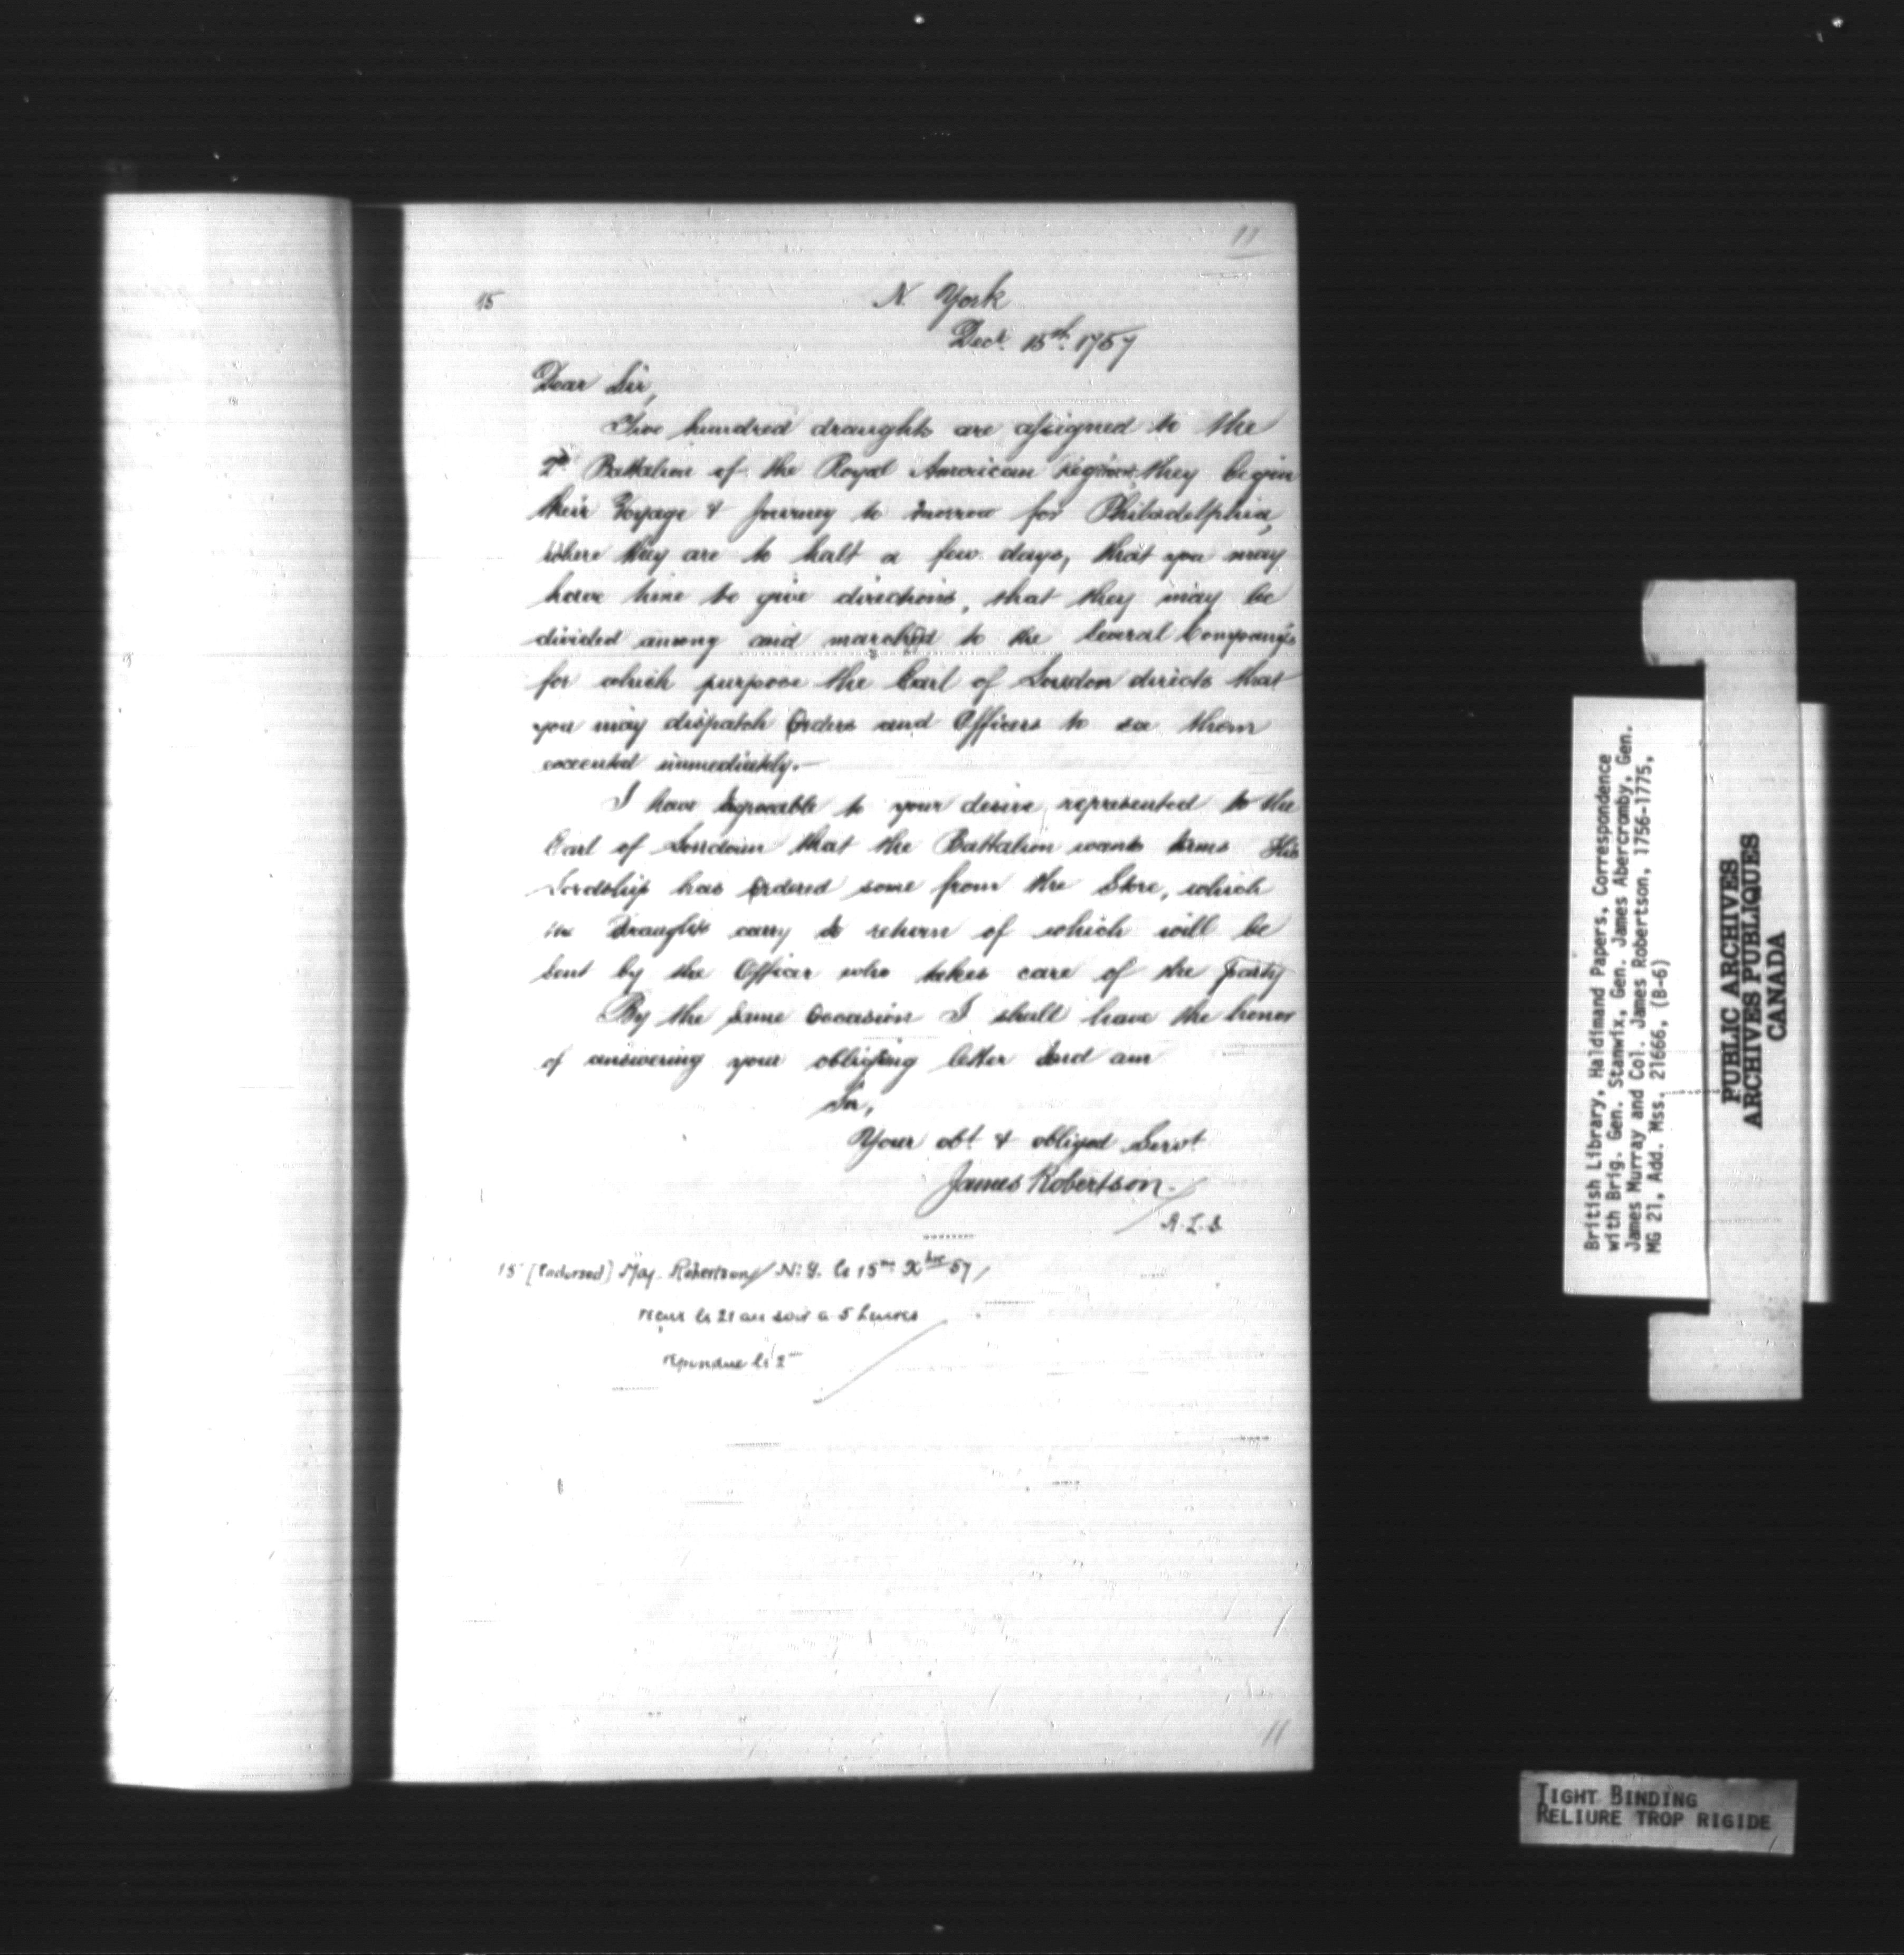 11
15
N. York
Decr. 15th. 1757
Dear Sir,
Two hundred draughts are assigned to the
2d Battalion of the Royal American Regiment they begin
their Voyage & Journey to morrow for Philadelphia,
where they are to halt a few days, that you may
have time to give directions, that they may be
divided among and marched to the Several Company's
for which purpose the Earl of Loudon directs that
you may dispatch Orders and Officers to see them
executed immediately.—
I have Agreeable to your desire, represented to the
Earl of Loudoun that the Battalion wants Arms His
Lordship has Ordered some from the Store, which
the Draughts carry A return of which will be
Sent by the Officer who takes care of the party
By the Same Occasion I shall have the honor
of answering your obliging letter And am
Sir,
Your obt. & obliged Servt.
James Robertson.
A. L. S
15 [Endorsed] Maj. Robertson / N: Y. le 15me Xbre 57 /
reçue le 21 au soir a 5 heures
repondue le 2
11
British Library, Haldimand Papers, Correspondence
with Brig. Gen. Stanwix, Gen. James Abercromby, Gen.
James Murray and Col. James Robertson, 1756-1775,
MG 21, Add. Mss. 21666, (B-6)
PUBLIC ARCHIVES
ARCHIVES PUBLIQUES
CANADA
TIGHT BINDING
RELIURE TROP RIGIDE